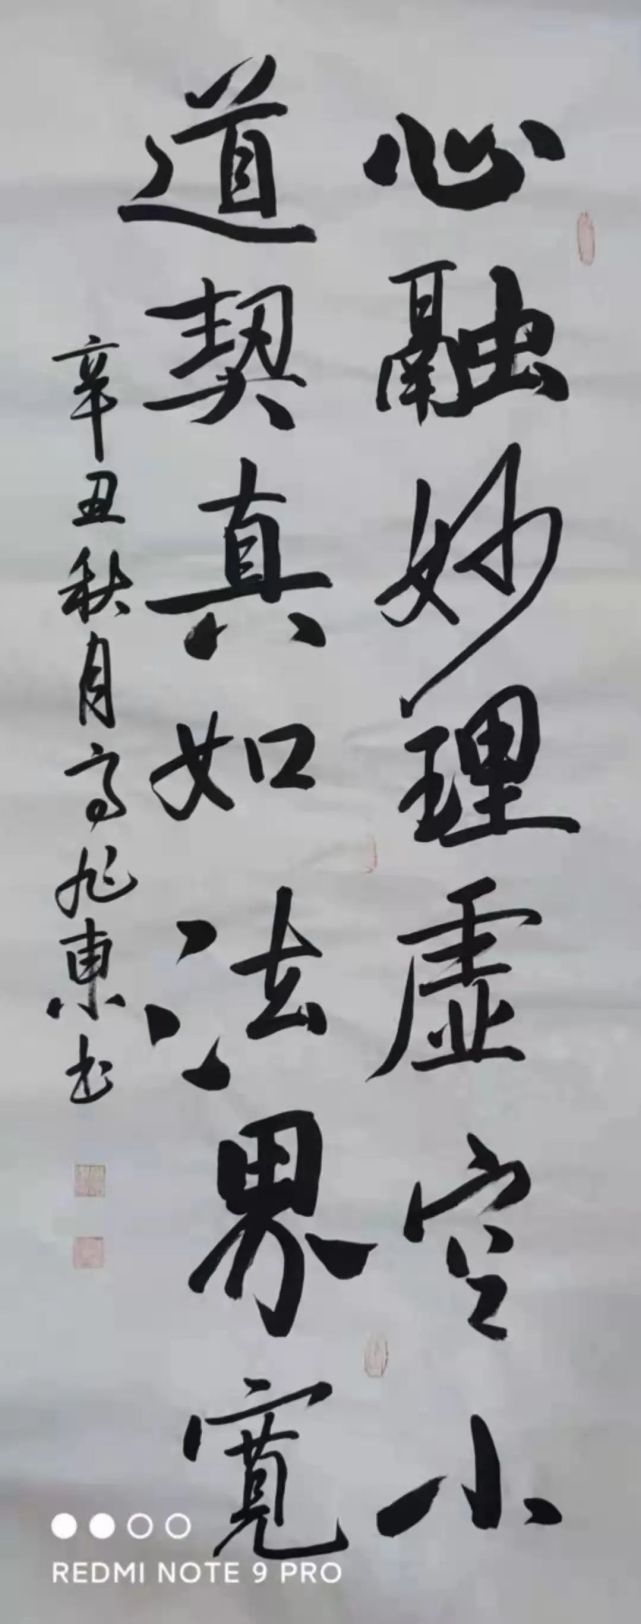 心融妙理虛空小
道契真如法界寬
辛丑秋月高旭東书
REDMI NOTE 9 PRO